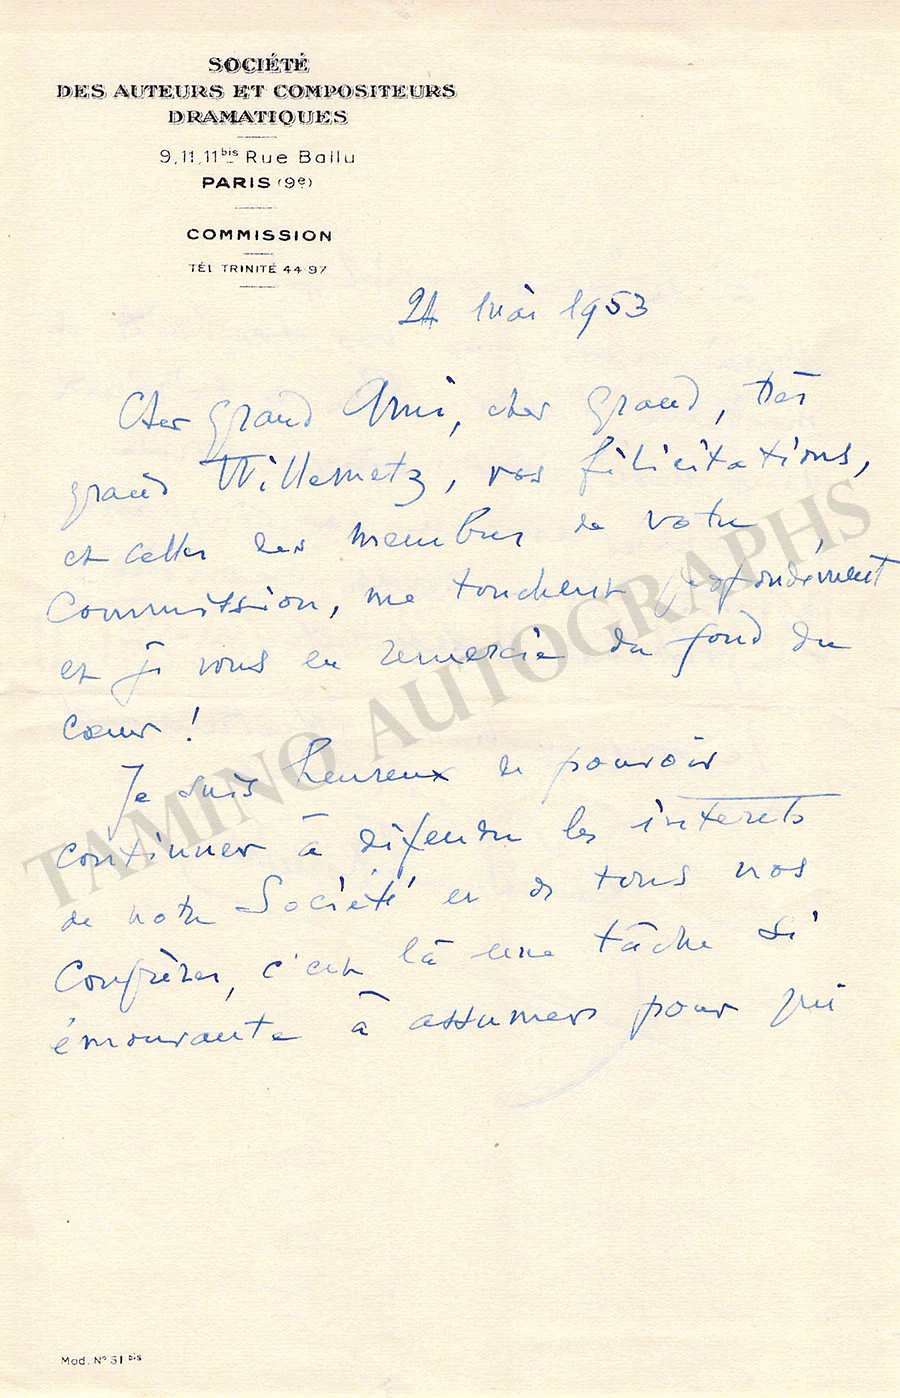 SOCIÉTÉ
DES AUTEURS ET COMPOSITEURS
DRAMATIQUES
9, 11, 11bis Rue Ballu
PARIS (9e)
COMMISSION
TÉL TRINITÉ 44-97
24 Mai 1953
Cher grand Ami, cher grand, très
grand Willemetz, vos félicitations,
et celles des membres de votre
Commission, me touchent profondément
et je vous en remercie du fond du
cœur !
Je suis heureux de pouvoir
continuer à défendre les intérêts
de notre Société et de tous nos
Confrères, c'est là une tâche si
émouvante à assumer pour qui
TAMINO AUTOGRAPHS
Mod. N° 51 bis